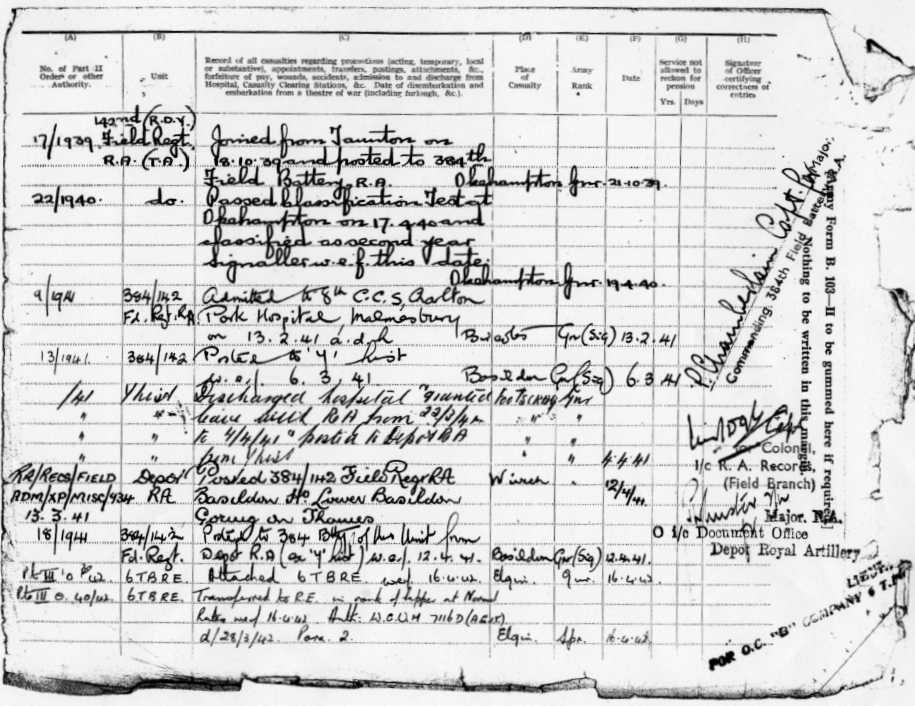 (A) (B) (C) (D) (E) (F) (G) (H)
No. of Part II Order or other Authority.
Unit
Record of all casualties regarding promotions (acting, temporary, local
or substantive), appointments, transfers, postings, attachments, &c.,
forfeiture of pay, wounds, accidents, admission to and discharge from
Hospital, Casualty Clearing Stations, &c. Date of disembarkation and
embarkation from a theatre of war (including furlough, &c.).
Place of Casualty
Army Rank
Date
Service not allowed to reckon for pension
Yrs. Days
Signature of Officer certifying correctness of entries
142nd (R.D.Y.)
17/1939. Field Regt. Joined from Taunton on
R.A. (T.A.) 18.10.39 and posted to 384th
Field Battery, R.A. Okehampton Gnr. 21.10.39.
22/1940. do. Passed Classification Test at
Okehampton on 17.4.40 and
classified as second year
signaller w.e.f. this date.
Okehampton Gnr. 19.4.40.
9/1941 384/142 Admitted to 8th C.C.S.
Fd. Regt. RA Park Hospital Malmesbury
on 13.2.41 Gnr (Sig) 13.2.41
13/1941. 384/142 Posted to 'Y' list
w.e.f. 6.3.41 Basildon Gnr (Sig) 6.3.41
/41 Y list Discharged hospital granted Gnr
" " leave with RA from " "
" " to 4/4/41 posted to Depot RA " "
" " from Y list " " 4.4.41
RA/RECS/FIELD Depot Posted 384/142 Field Regt RA 12/4/41.
ADM/XP/MISC/434 RA Basildon Ho Lower Basildon
13.3.41 Goring on Thames
18/1941 384/142 Posted to 384 Bty of this Unit from
Fd. Regt. Depot R.A (ex 'Y' list) w.e.f. 12.4.41. Basildon Gnr (Sig) 12.4.41.
Pt III O 42. 6 T.B.R.E. Attached 6 T.B.R.E. wef 16.4.42. Elgin. Gnr. 16.4.42.
Pt III O. 40/42. 6 T.B.R.E. Transferred to R.E. in rank of Sapper at Normal
Rates wef 16.4.42. Auth: W.O.U.M 7116D
d/28/3/42. Para. 2. Elgin. Spr. 16.4.42.
Chamberlain Capt. for Major,
Commanding 384th Field Battery R.A.
Army Form B. 103—II to be gummed here if required.
Nothing to be written in this margin.
for Colonel,
I/c R. A. Records,
(Field Branch)
Major. R.A.
O i/c Document Office
Depot Royal Artillery
FOR O.C. "B" COMPANY 6 T.